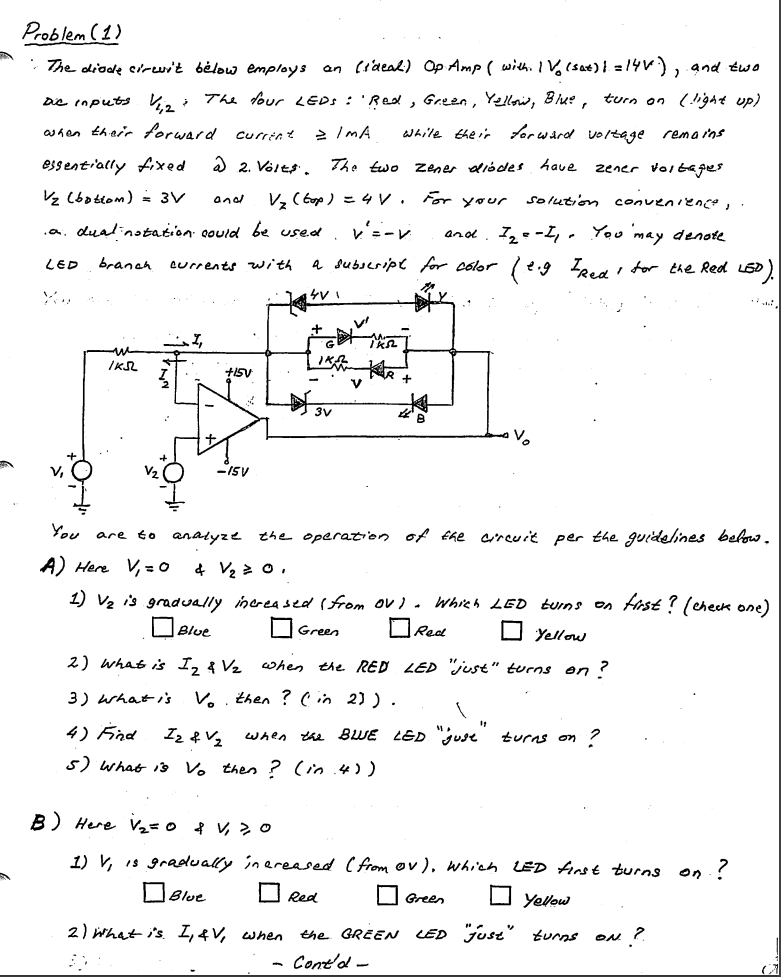 Problem (1)
The diode circuit below employs an (ideal) Op Amp ( with |Vo (sat)| = 14V ), and two
DC inputs V1,2 ; The four LEDs : Red, Green, Yellow, Blue, turn on (light up)
when their forward current ≥ 1mA while their forward voltage remains
essentially fixed @ 2. Volts. The two zener diodes have zener voltages
Vz (bottom) = 3V and Vz (top) = 4V. For your solution convenience,
a dual notation could be used V' = -V and I2 = -I1. You may denote
LED branch currents with a subscript for color (e.g IRed, for the Red LED).
4V
Y
+ V' -
G 1KΩ
I1
1KΩ
1KΩ
R
- V +
I2
+15V
-
3V
B
+
Vo
-15V
+
V1
-
+
V2
-
You are to analyze the operation of the circuit per the guidelines below.
A) Here V1 = 0 & V2 ≥ 0.
1) V2 is gradually increased (from 0V). Which LED turns on first? (check one)
Blue Green Red Yellow
2) What is I2 & V2 when the RED LED "just" turns on ?
3) What is Vo then ? (in 2)).
4) Find I2 & V2 when the BLUE LED "just" turns on ?
5) What is Vo then ? (in 4))
B) Here V2 = 0 & V1 ≥ 0
1) V1 is gradually increased (from 0V). Which LED first turns on ?
Blue Red Green Yellow
2) What is I1 & V1 when the GREEN LED "just" turns on ?
- Cont'd -